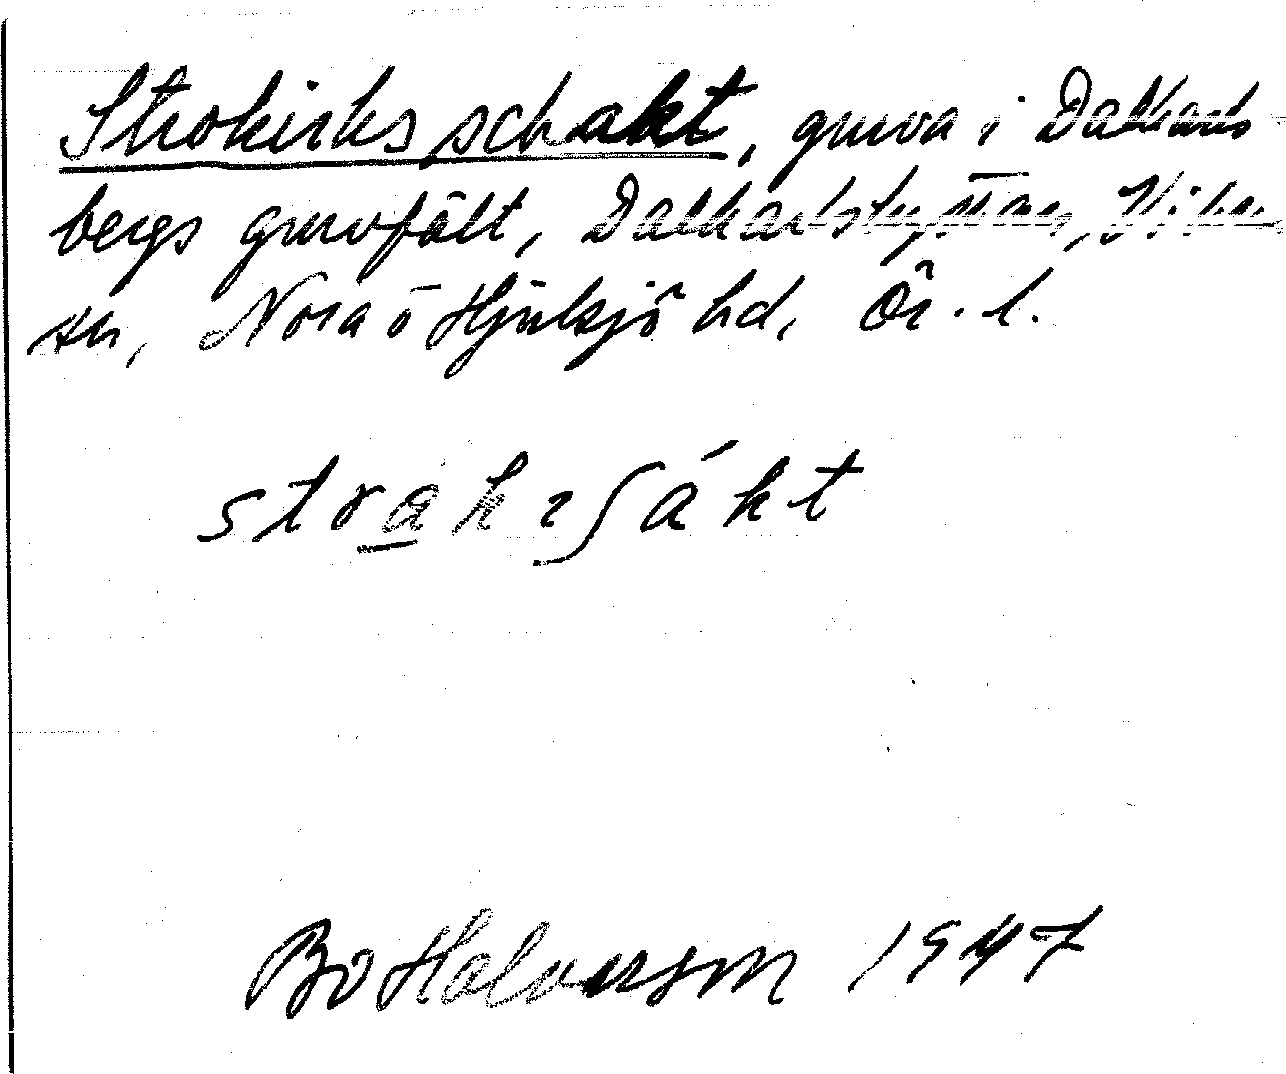 Strokirks schakt, gruva i Dalkarls
bergs gruvfält, Dalkarlshyttan, Viker
sn, Nora o Hjulsjö hd, Ör. l.
strakesʃákt
Bo Halvarson 1947